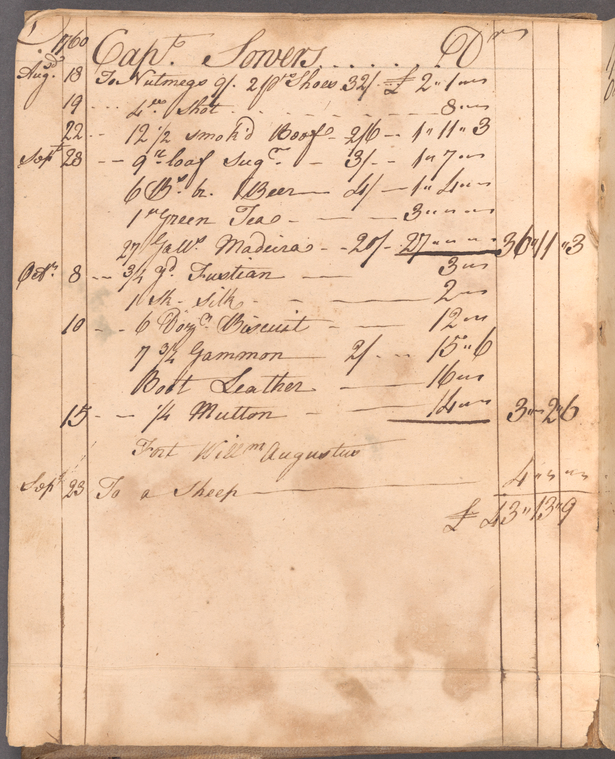 1760 Capt. Sowers..... Dr
Augt. 18 To Nutmegs 9/. 2 prs Shoes 32/ £ 2"1"
19 ... 4 lbs Shot 8"
22 -- 12 1/2 smok'd Beef - 2/6 - 1"11"3
Sept 28 -- 9 lb loaf Sugr. - 3/- 1"7"
6 Bs. br. Beer - 4/ - 1"4"
1 lb Green Tea - - - 3"
27 Galls. Madeira - - 20/- 27" 36"11"3
Octr. 8 -- 3/4 yd Fustian — 3"
1 sk. silk - 2"
10 -- 6 Doz. Biscuit - 12"
7 3/4 Gammon - 2/ - 15"6
Boot Leather 16"
15 -- 1/4 Mutton 14" 3"2"6
Fort Willm Augustus
Sept. 23 To a Sheep 4"
£ 43"13"9